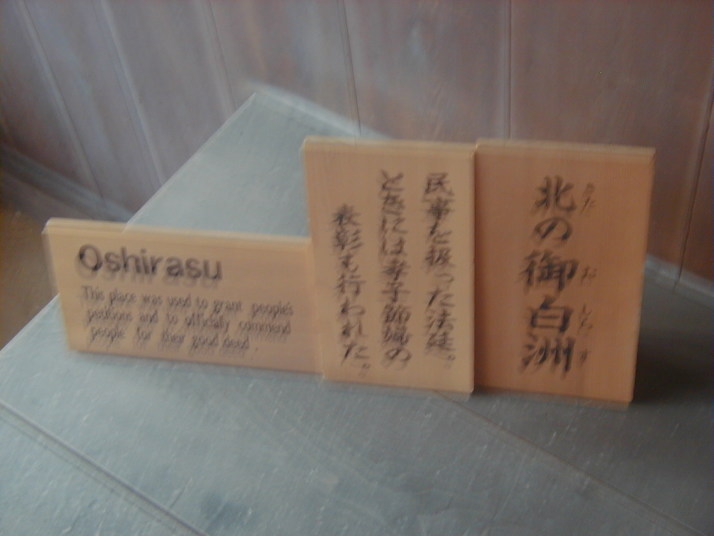 北の御白洲
きた
お
しらす
民事を扱った法廷。
ときには孝子節婦の
表彰も行われた。
Oshirasu
This place was used to grant people's
petitions and to officially commend
people for their good deed.